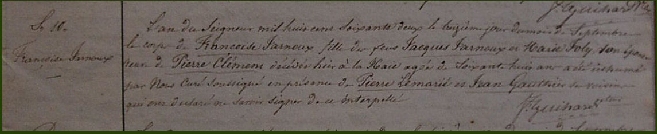 J Guichard
Le 11.
Françoise Jarnoux
L'an du Seigneur mil huit cent soixante deux le onzième jour du mois de Septembre
le corps de Françoise Jarnoux fille de feus Jacques Jarnoux et Marie Joly
de Pierre Clémens décédée hier à la Haie agée de Soixante huit ans a été inhumé
par Nous Curé soussigné en présence de Pierre Lemaril et Jean Gauthier
qui ont déclaré ne savoir signer de ce interpellé
J Guichard